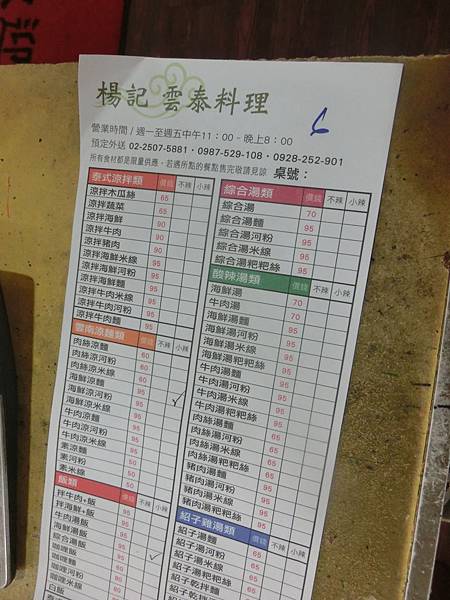 楊記 雲泰料理
6
營業時間 / 週一至週五中午11:00-晚上8:00
預定外送 02-2507-5881・0987-529-108・0928-252-901
所有食材都是限量供應、若遇所點的餐點售完敬請見諒 桌號:
泰式涼拌類 價錢 不辣 小辣
涼拌木瓜絲 65
涼拌蔬菜 65
涼拌海鮮 90
涼拌牛肉 90
涼拌豬肉 90
涼拌海鮮米線 95
涼拌海鮮河粉 95
涼拌海鮮麵 95
涼拌牛肉米線 95
涼拌牛肉河粉 95
涼拌牛肉麵 95
雲南涼麵類 價錢 不辣 小辣
肉絲涼麵 60
肉絲涼河粉 60
肉絲涼米線 60
海鮮涼麵 95
海鮮涼河粉 95
海鮮涼米線 95
牛肉涼麵 95
牛肉涼河粉 95
牛肉涼米線 95
素涼麵 50
素河粉 50
素米線 50
飯類 價錢 不辣 小辣
拌牛肉+飯 95
拌海鮮+飯 95
牛肉湯飯 95
海鮮湯飯 95
綜合湯飯 95
咖哩飯
咖哩麵
咖哩河粉
咖哩米線
白飯
綜合湯類 價錢 不辣 小辣
綜合湯 70
綜合湯麵 95
綜合湯河粉 95
綜合湯米線 95
綜合湯粑粑絲 95
酸辣湯類 價錢 不辣 小辣
海鮮湯 70
牛肉湯 70
海鮮湯麵 95
海鮮湯河粉 95
海鮮湯米線 95
海鮮湯粑粑絲 95
牛肉湯麵 95
牛肉湯河粉 95
牛肉湯米線 95
牛肉湯粑粑絲 95
肉絲湯麵 95
肉絲湯河粉 95
肉絲湯米線 95
肉絲湯粑粑絲 95
豬肉湯麵 95
豬肉湯河粉 95
豬肉湯米線 95
豬肉湯粑粑絲 95
紹子雞湯類 價錢 不辣 小辣
紹子湯麵 65
紹子湯河粉 65
紹子湯米線 65
紹子乾拌麵 65
紹子乾拌